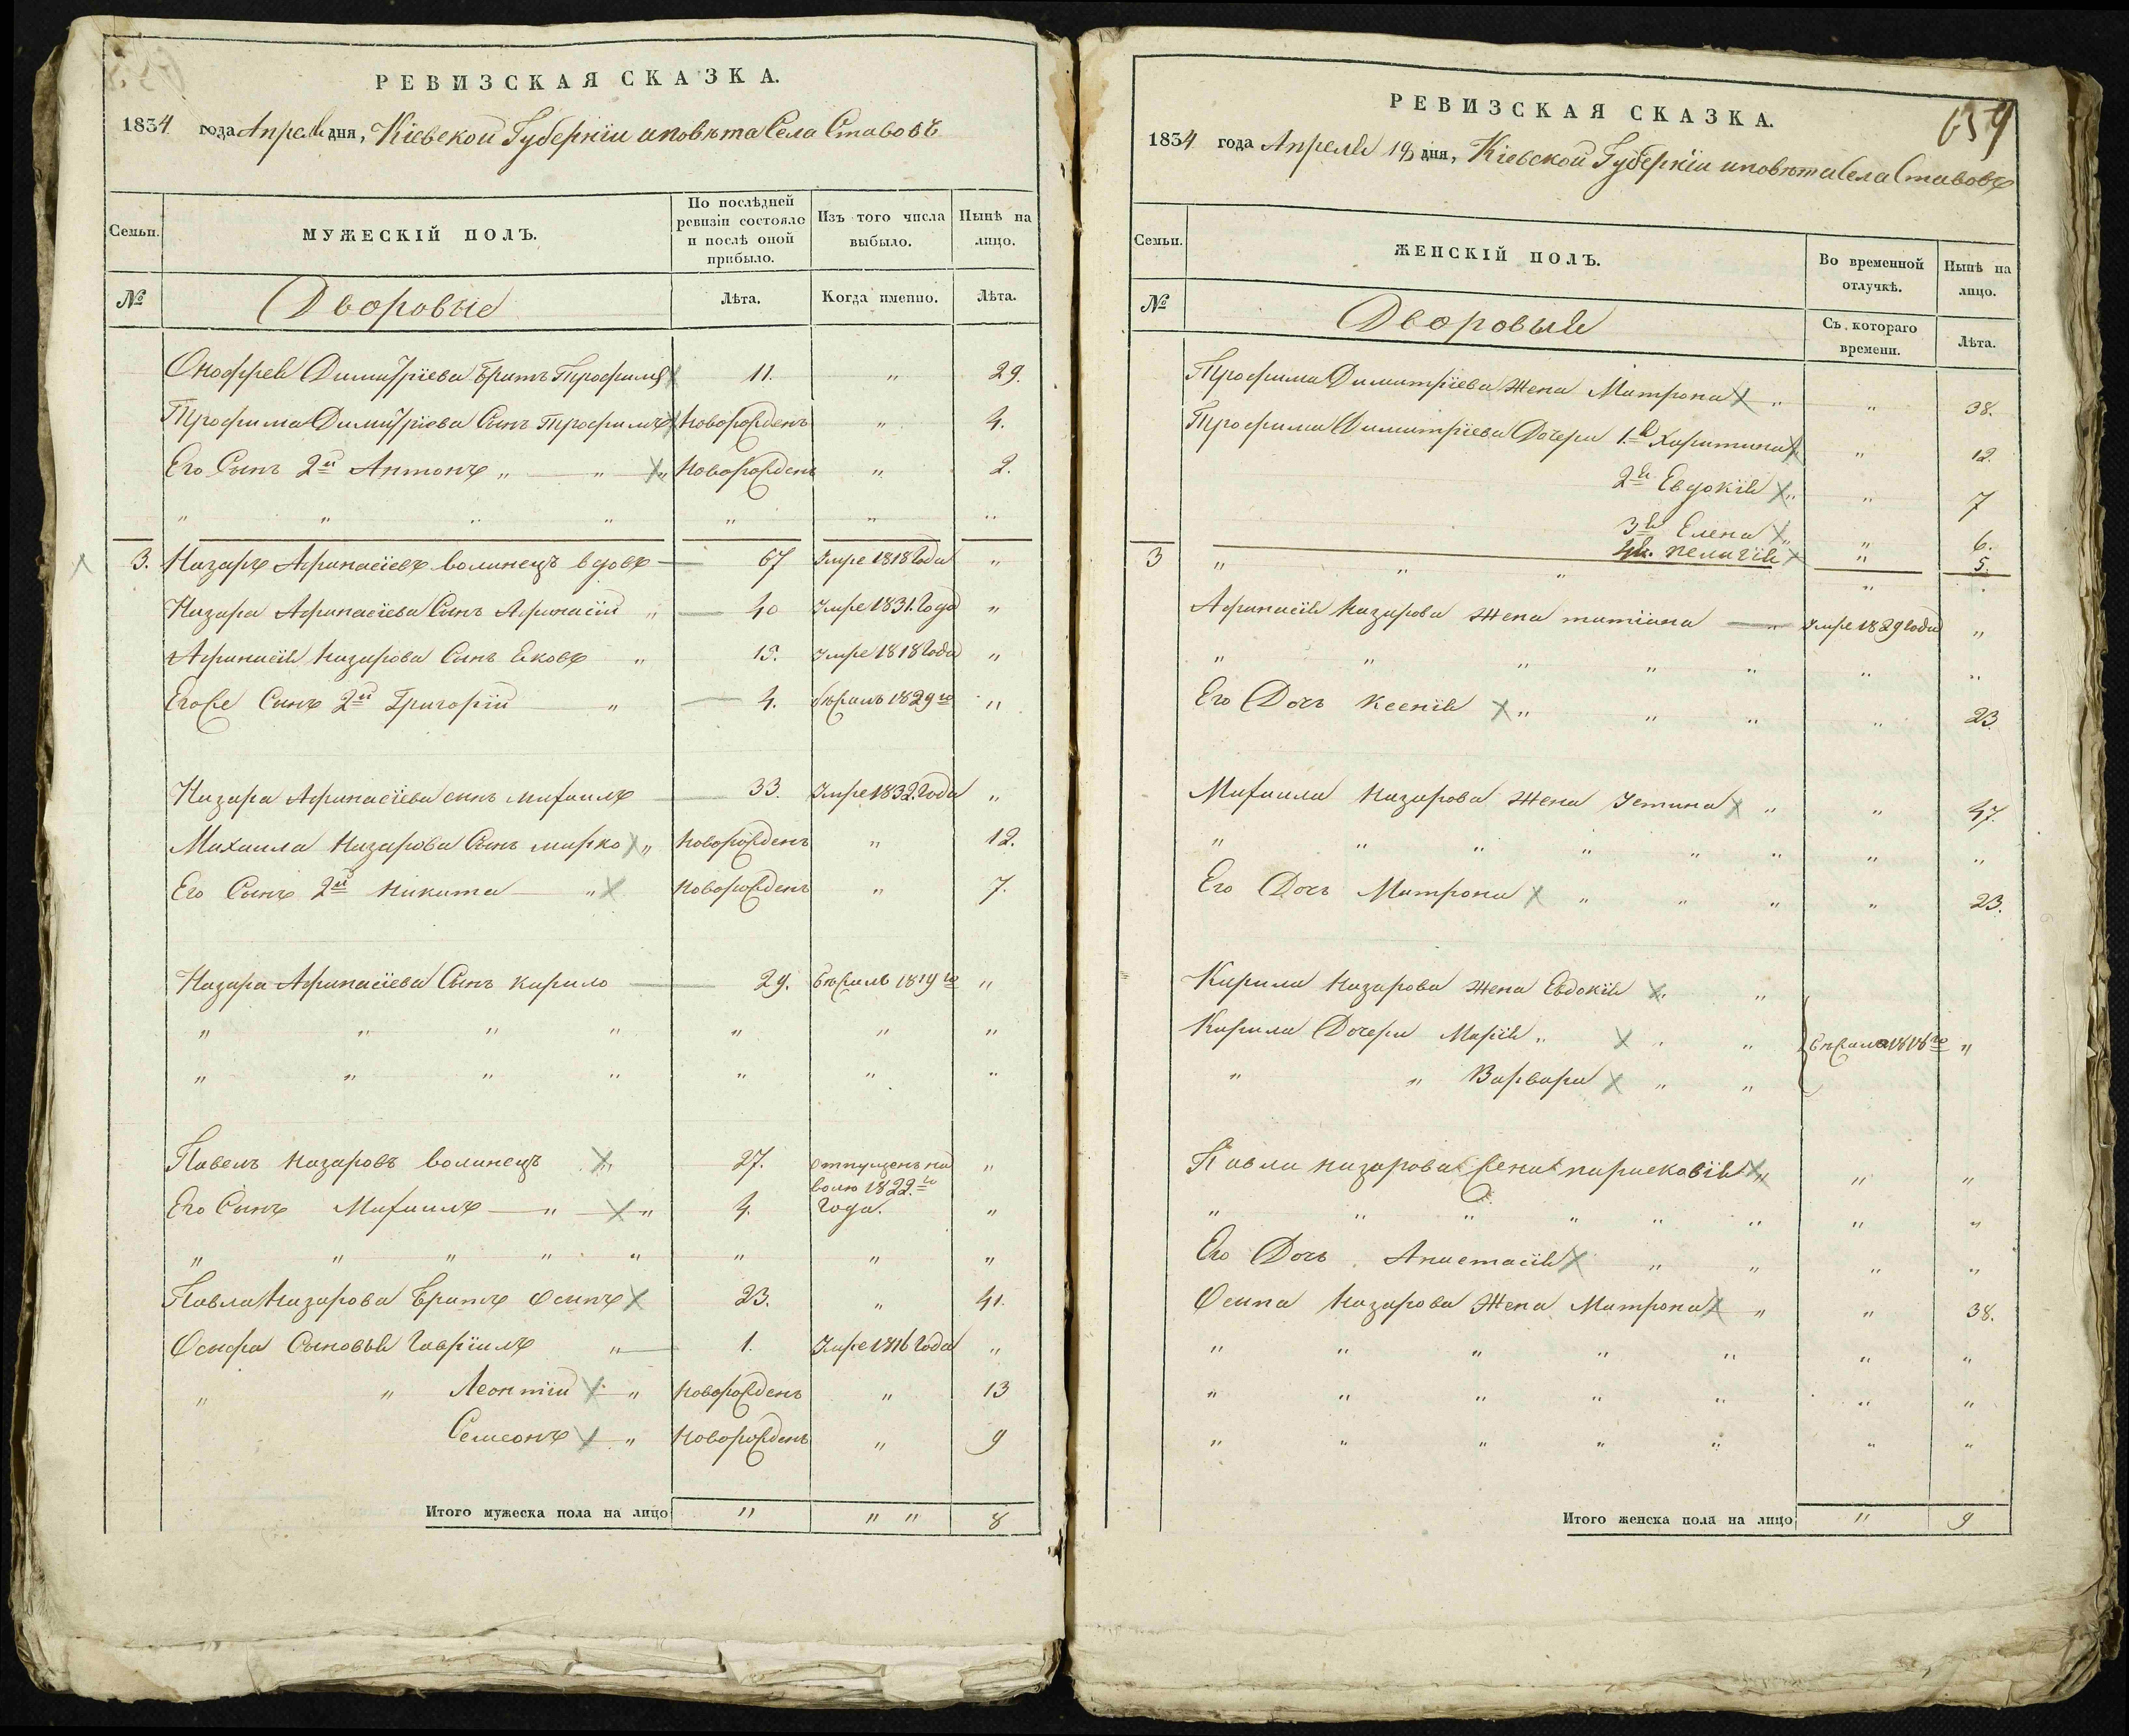 РЕВИЗСКАЯ СКАЗКА.
1834 года Апреля дня, Кіевской Губерніи и повѣта Села Ставовъ
Семьи. МУЖЕСКІЙ ПОЛЪ. По послѣдней ревизіи состояло и послѣ оной прибыло. Изъ того числа выбыло. Нынѣ на лицо.
№ Дворовые Лѣта. Когда именно. Лѣта.
Онофрея Димитріева братъ Трофимъ 11. " 29.
Трофима Димитріева Сынъ Трофимъ новорожденъ " 4.
Его Сынъ 2й Антонъ " " " новорожденъ " 2.
" " " " " " "
3. Назаръ Афанасіевъ волинецъ вдовъ 67 Умре 1818 Года "
Назара Афанасіева Сынъ Афанасій " 40 Умре 1831. Года "
Афанасія Назарова Сынъ Яковъ " 15. Умре 1818 Года "
Егоже Сынъ 2й Григорій " 4. бѣжалъ 1829 го "
Назара Афанасіева сынъ михаилъ 33. Умре 1832. Года "
Михаила Назарова Сынъ марко " новорожденъ " 12.
Его Сынъ 2й никита " новорожденъ " 7.
Назара Афанасіева Сынъ кирило 29. бѣжалъ 1819 го "
" " " " " " "
" " " " " " "
Павелъ назаровъ волинецъ " 27. отпущенъ на "
волю 1822. го
Его Сынъ Михаилъ " " 4. Года. "
" " " " " " " "
Павла Назарова братъ Осипъ 23. " 41.
Осифа Сыновья Гавріилъ " 1. Умре 1816 Года "
" " Леонтій " новорожденъ " 13
Семеонъ " новорожденъ " 9
Итого мужеска пола на лицо " " " 8
659
РЕВИЗСКАЯ СКАЗКА.
1834 года Апреля 19 дня, Кіевской Губерніи и повѣта Села Ставовъ
Семьи. ЖЕНСКІЙ ПОЛЪ. Во временной отлучкѣ. Нынѣ на лицо.
№ Дворовыя Съ котораго времени. Лѣта.
Трофима Димитріева Жена Матрона " " 38.
Трофима Димитріева Дочери 1.я Харитина " 12.
2я Евдокія " " 7
3я Елена " " 6.
4я. пелагія " 5.
3 " " " "
Афанасія Назарова Жена татіана " Умре 1829 года "
" " " " " " "
Его Дочъ ксенія " " " " 23.
Михаила Назарова Жена Устина " " 47.
" " " " " " " "
Его Дочъ Матрона " " " " 23.
Кирила Назарова Жена Евдокія " "
Кирила Дочери Марія " " " бѣжала 1818 го "
" " Варвара " "
Павла назарова жена парасковія " " "
" " " " " " " "
Его Дочъ Анастасія " " " "
Осипа Назарова Жена Матрона " " 38.
" " " " " " "
" " " " " " "
" " " " " " "
Итого женска пола на лицо " 9